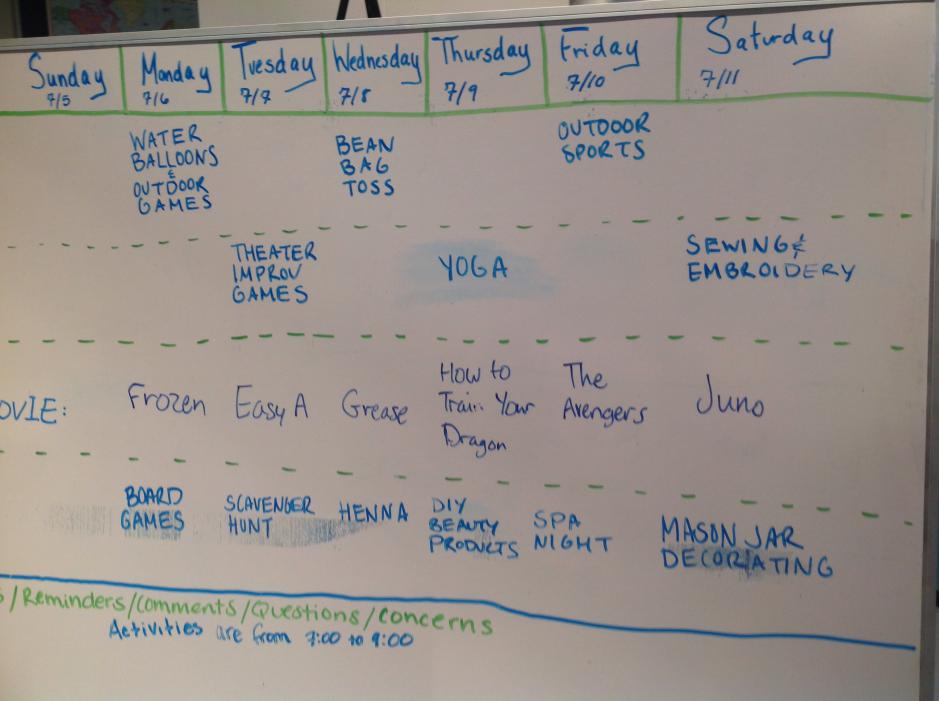 Sunday Monday Tuesday Wednesday Thursday Friday Saturday
7/5 7/6 7/7 7/8 7/9 7/10 7/11
WATER
BALLOONS
&
OUTDOOR
GAMES
BEAN
BAG
TOSS
OUTDOOOR
SPORTS
THEATER
IMPROV
GAMES
YOGA
SEWING &
EMBROIDERY
OVIE:
Frozen
Easy A
Grease
How to
Train Your
Dragon
The
Avengers
Juno
BOARD
GAMES
SCAVENGER
HUNT
HENNA
DIY
BEAUTY
PRODUCTS
SPA
NIGHT
MASON JAR
DECORATING
/Reminders/Comments/Questions/Concerns
Activities are from 7:00 to 9:00